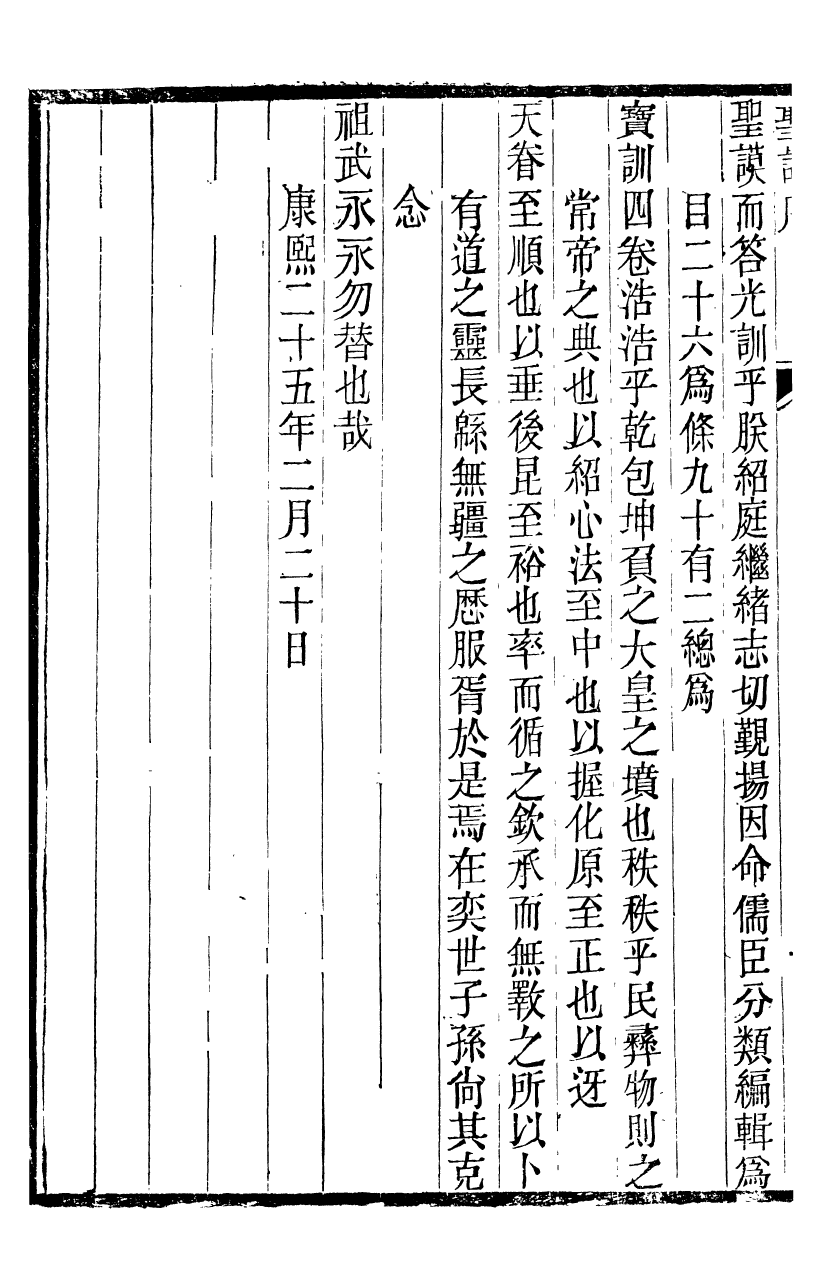 聖謨而答光訓乎朕紹庭繼緒志切覲揚因命儒臣分類編輯爲
目二十六爲條九十有二總爲
寶訓四卷浩浩乎乾包坤負之大皇之墳也秩秩乎民彝物則之
常帝之典也以紹心法至中也以握化原至正也以迓
天眷至順也以垂後昆至裕也率而循之欽承而無斁之所以卜
有道之靈長緜無疆之厯服胥於是焉在奕世子孫尙其克
念
祖武永永勿替也哉
康熙二十五年二月二十日